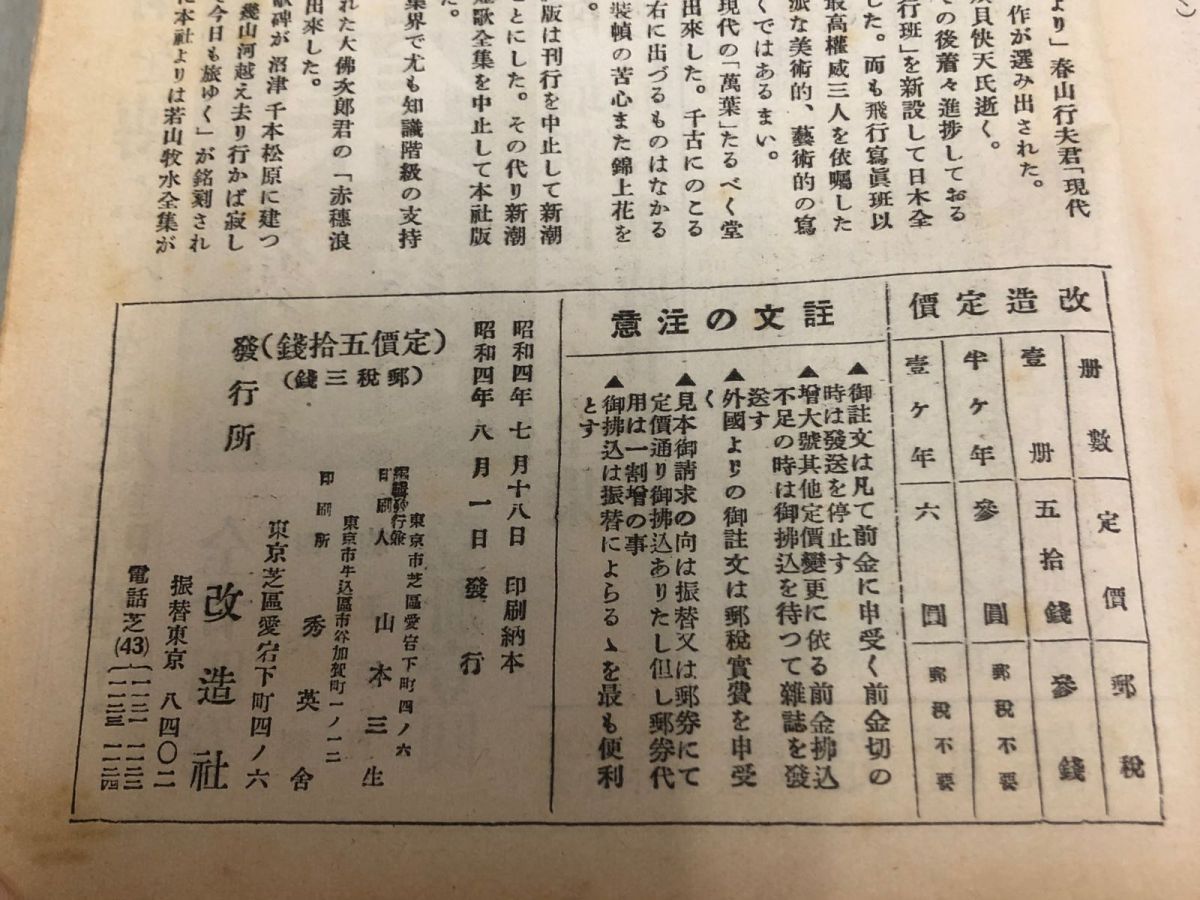 より」春山行夫君「現代
作が選み出された。
員快天氏逝く。
の後着々進捗しておる
行班」を新設して日本全
した。而も飛行寫眞班以
最高權威三人を依囑した
派な美術的、藝術的の寫
くではあるまい。
現代の「萬葉」たるべく堂
出來した。千古にのこる
右に出づるものはなかる
裝幀の苦心また錦上花を
す。
版は刊行を中止して新潮
ことにした。その代り新潮
短歌全集を中止して本社版
た。
集界で尤も知識階級の支持
出來した。
れた大佛次郎君の「赤穗浪
歌碑が沼津千本松原に建つ
幾山河越え去り行かば寂し
今日も旅ゆく」が銘刻され
に本社よりは若山牧水全集が
改造定價
册數 定價 郵稅
壹册 五拾錢 參錢
半ケ年 參圓 郵稅不要
壹ケ年 六圓 郵稅不要
註文の注意
▲御註文は凡て前金に申受く前金切の
時は發送を停止す
▲增大號其他定價變更に依る前金拂込
不足の時は御拂込を待つて雜誌を發
送す
▲外國よりの御註文は郵稅實費を申受
く
▲見本御請求の向は振替又は郵券にて
定價通り御拂込ありたし但し郵券代
用は一割增の事
▲御拂込は振替によらるゝを最も便利
とす
昭和四年七月十八日印刷納本
昭和四年八月一日發行
(定價五拾錢)
(郵稅三錢)
東京市芝區愛宕下町四ノ六
編輯發行兼
印刷人 山本三生
東京市牛込區市谷加賀町一ノ一二
印刷所 秀英舍
發行所
東京芝區愛宕下町四ノ六
改造社
振替東京八四〇二
電話芝(43)